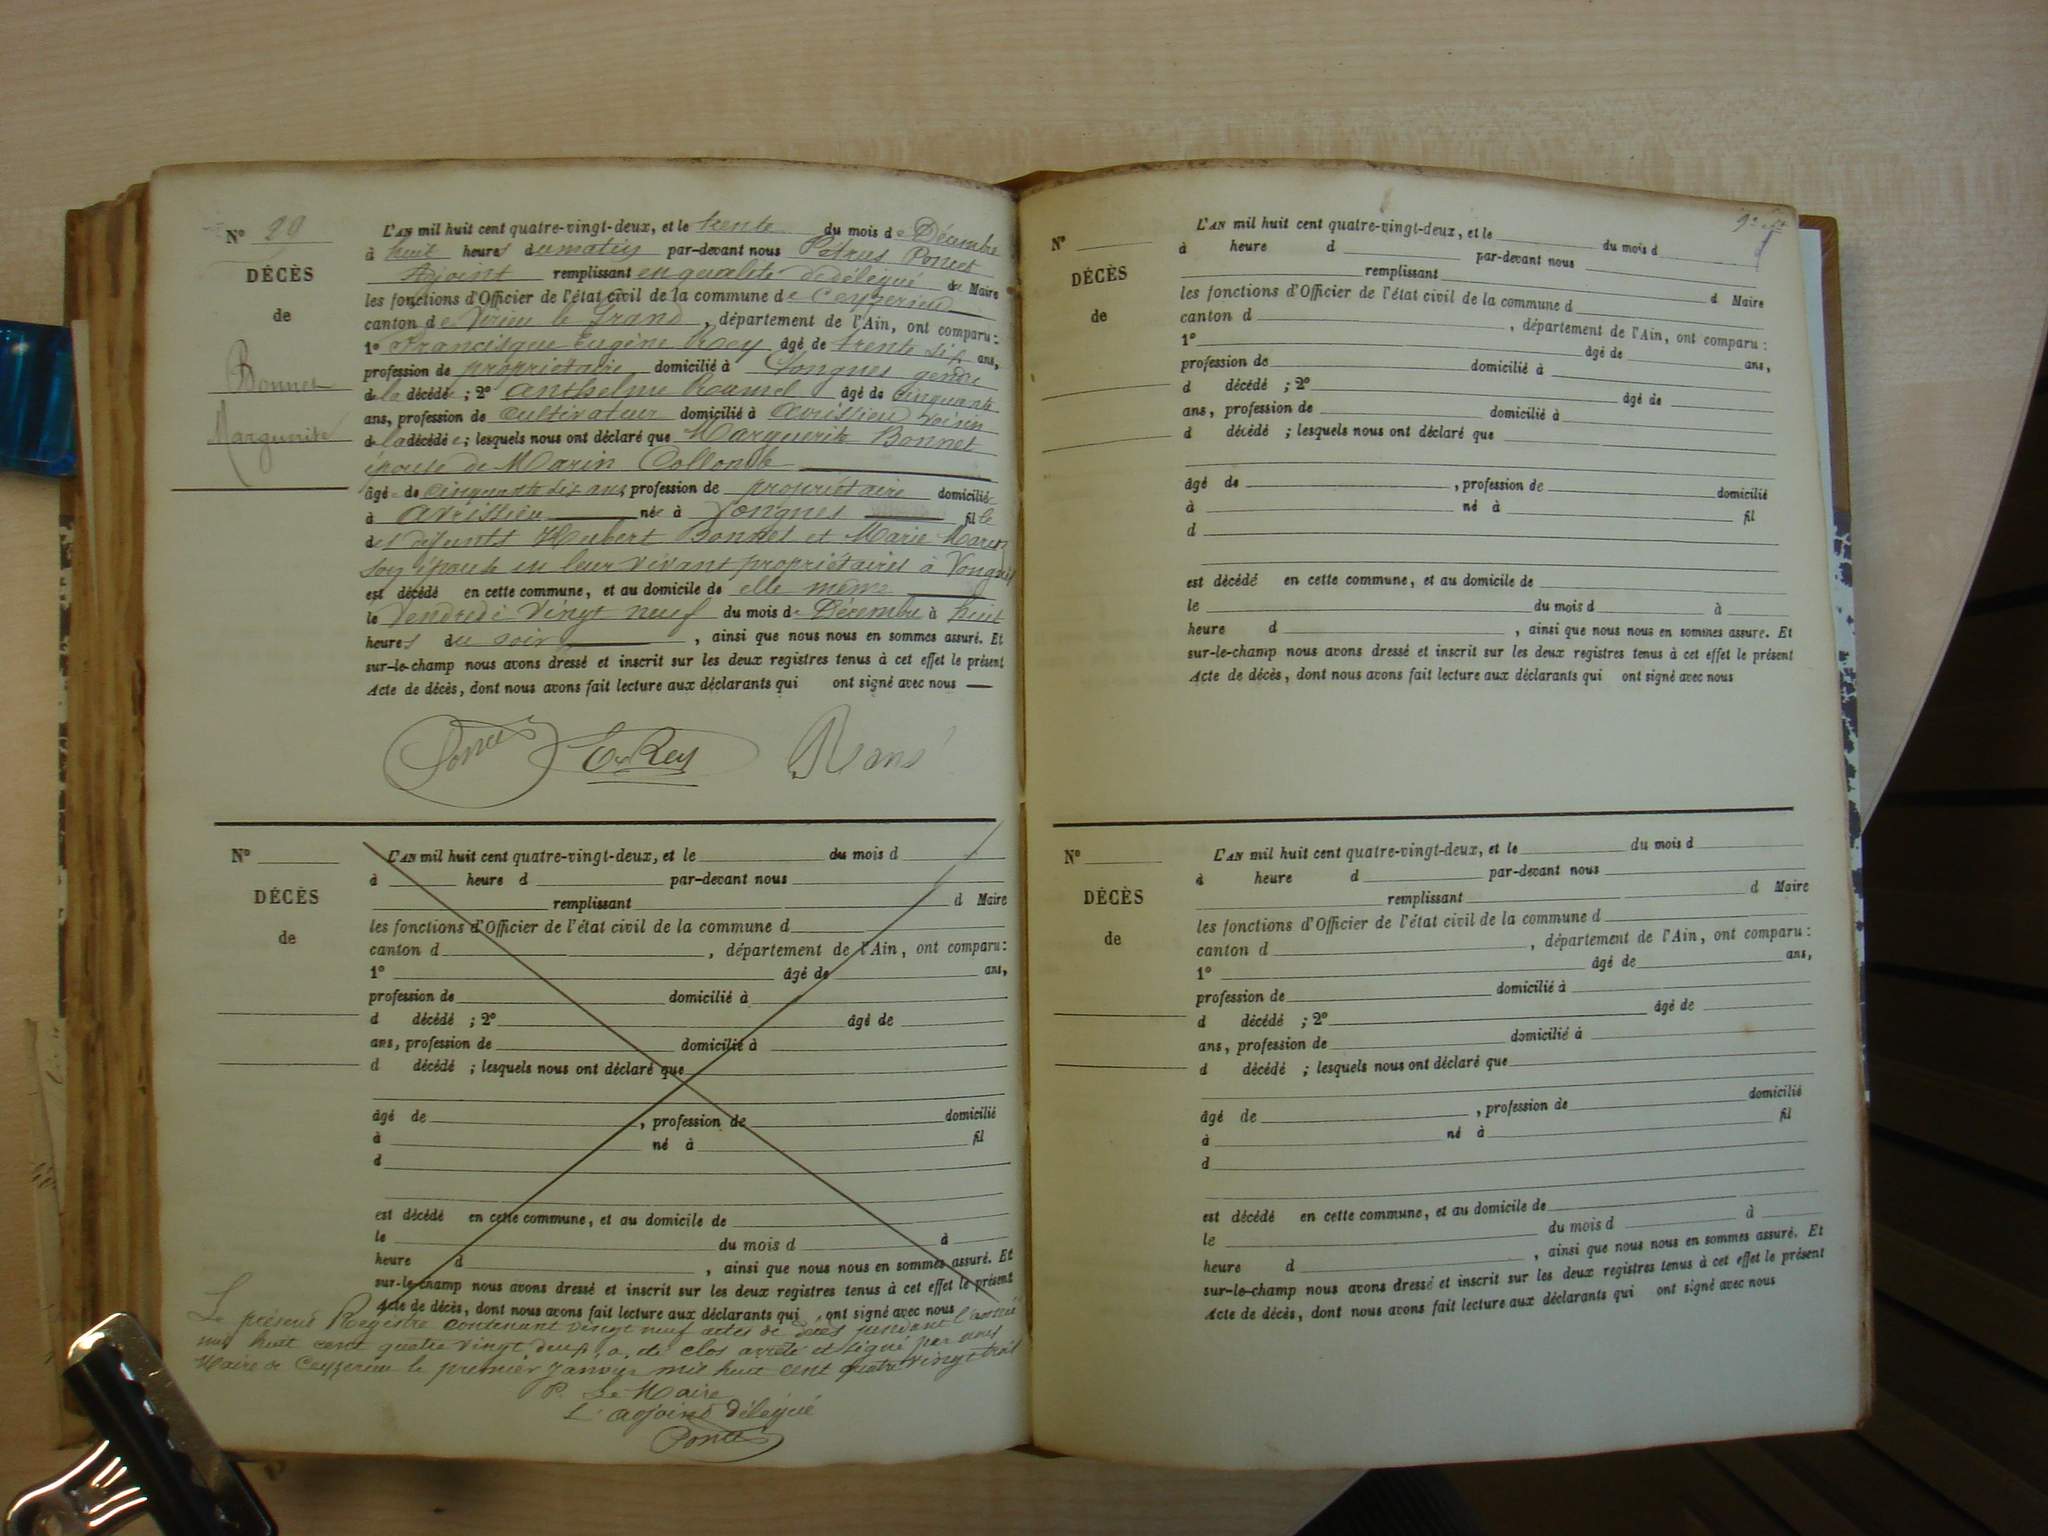 N° 29
DÉCÈS
de
Bonnet
Marguerite
L'AN mil huit cent quatre-vingt-deux, et le trente du mois de Décembre
à huit heures du matin par-devant nous Pétrus Poncet
Adjoint remplissant en qualité de délégué de Maire
les fonctions d'Officier de l'état civil de la commune de Ceyzerieu
canton de Virieu le Grand, département de l'Ain, ont comparu:
1° Francisque Eugène Rey âgé de trente six ans,
profession de propriétaire domicilié à Vongnes gendre
de la décédé; 2° Anthelme âgé de cinquante
ans, profession de cultivateur domicilié à Avrissieu voisin
de la décédée; lesquels nous ont déclaré que Marguerite Bonnet
épouse de Marin Collomb
âgée de cinquante six ans, profession de propriétaire domicilié
à Avrissieu née à Vongnes fille
des défunts Hubert Bonnet et Marie Marin
son épouse en leur vivant propriétaires à Vongnes
est décédé en cette commune, et au domicile de elle même
le Vendredi vingt neuf du mois de Décembre à huit
heures du soir, ainsi que nous nous en sommes assuré. Et
sur-le-champ nous avons dressé et inscrit sur les deux registres tenus à cet effet le présent
Acte de décès, dont nous avons fait lecture aux déclarants qui ont signé avec nous
Poncet E. Rey
N°
DÉCÈS
de
L'AN mil huit cent quatre-vingt-deux, et le du mois d
à heure d par-devant nous
remplissant d Maire
les fonctions d'Officier de l'état civil de la commune d
canton d , département de l'Ain, ont comparu:
1° âgé de ans,
profession de domicilié à
d décédé ; 2° âgé de
ans, profession de domicilié à
d décédé ; lesquels nous ont déclaré que
âgé de , profession de domicilié
à né à fil
d
est décédé en cette commune, et au domicile de
le du mois d à
heure d , ainsi que nous nous en sommes assuré. Et
sur-le-champ nous avons dressé et inscrit sur les deux registres tenus à cet effet le présent
Acte de décès, dont nous avons fait lecture aux déclarants qui , ont signé avec nous
Le présent Registre contenant vingt neuf actes de décès pendant l'année
mil huit cent quatre vingt deux, a, été clos arrêté et signé par nous
Maire de Ceyzerieu le premier Janvier mil huit cent quatre vingt trois
P. Le Maire
L'adjoint délégué
Poncet
N°
DÉCÈS
de
L'AN mil huit cent quatre-vingt-deux, et le du mois d
à heure d par-devant nous
remplissant d Maire
les fonctions d'Officier de l'état civil de la commune d
canton d , département de l'Ain, ont comparu:
1° âgé de ans,
profession de domicilié à
d décédé ; 2° âgé de
ans, profession de domicilié à
d décédé ; lesquels nous ont déclaré que
âgé de , profession de domicilié
à né à fil
d
est décédé en cette commune, et au domicile de
le du mois d à
heure d , ainsi que nous nous en sommes assuré. Et
sur-le-champ nous avons dressé et inscrit sur les deux registres tenus à cet effet le présent
Acte de décès, dont nous avons fait lecture aux déclarants qui ont signé avec nous
N°
DÉCÈS
de
L'AN mil huit cent quatre-vingt-deux, et le du mois d
à heure d par-devant nous
remplissant d Maire
les fonctions d'Officier de l'état civil de la commune d
canton d , département de l'Ain, ont comparu:
1° âgé de ans,
profession de domicilié à
d décédé ; 2° âgé de
ans, profession de domicilié à
d décédé ; lesquels nous ont déclaré que
âgé de , profession de domicilié
à né à fil
d
est décédé en cette commune, et au domicile de
le du mois d à
heure d , ainsi que nous nous en sommes assuré. Et
sur-le-champ nous avons dressé et inscrit sur les deux registres tenus à cet effet le présent
Acte de décès, dont nous avons fait lecture aux déclarants qui ont signé avec nous